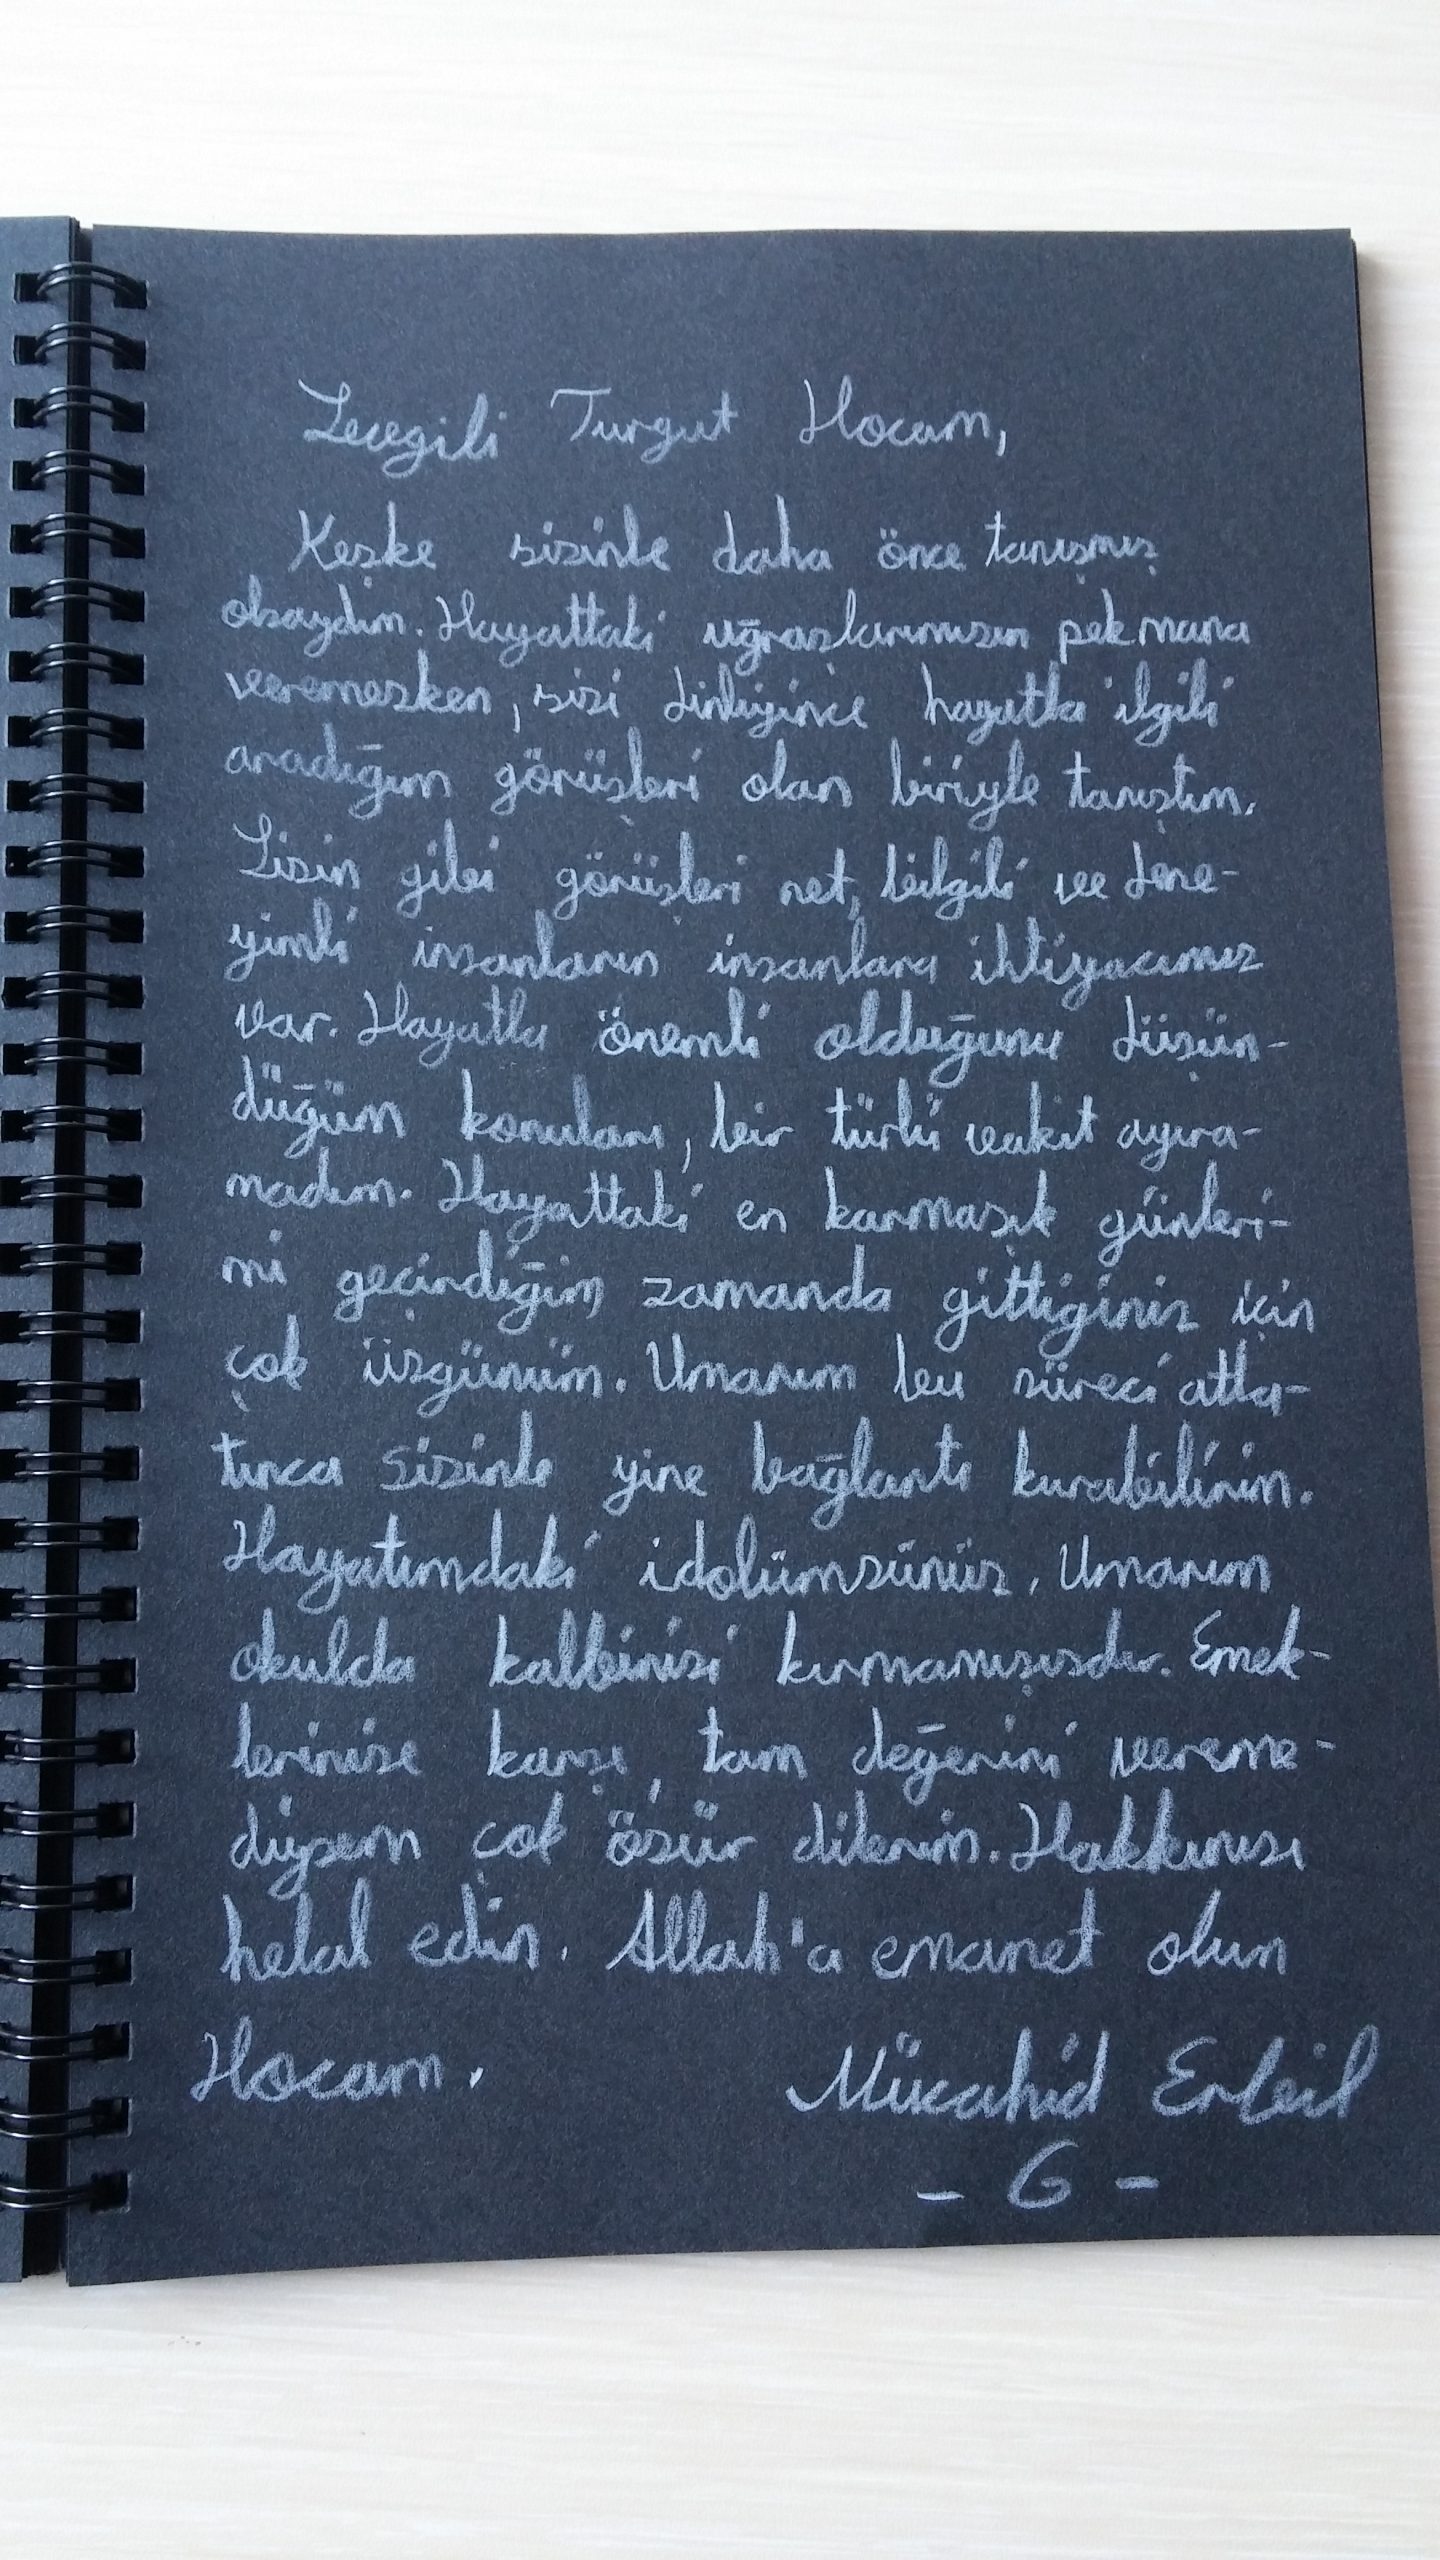 Sevgili Turgut Hocam,
Keşke sizinle daha önce tanışmış
olsaydım. Hayattaki uğraşlarımızın pek mana
veremezken, sizi dinleyince hayatla ilgili
aradığım görüşleri olan biriyle tanıştım.
Sizin gibi görüşleri net, bilgili ve dene-
yimli insanların insanlara ihtiyacımız
var. Hayatla önemli olduğunu düşün-
düğüm konuları, bir türlü vakit ayıra-
madım. Hayattaki en karmaşık günleri-
mi geçirdiğim zamanda gittiginiz için
çok üzgünüm. Umarım bu süreci atla-
tınca sizinle yine bağlantı kurabilirim.
Hayatımdaki idolümsünüz. Umarım
okulda kalbinizi kırmamışızdır. Emek-
lerinize karşı, tam değerini vereme-
diysem çok özür dilerim. Hakkınızı
helal edin. Allah'a emanet olun
Hocam.
Mücahid Erbil
- G -